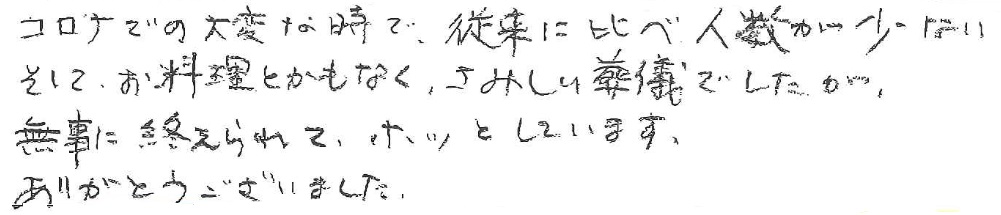 コロナでの大変な時で、従来に比べ人数が少ない
そして、お料理とかもなく、さみしい葬儀でしたが、
無事に終えられて、ホッとしています、
ありがとうございました.